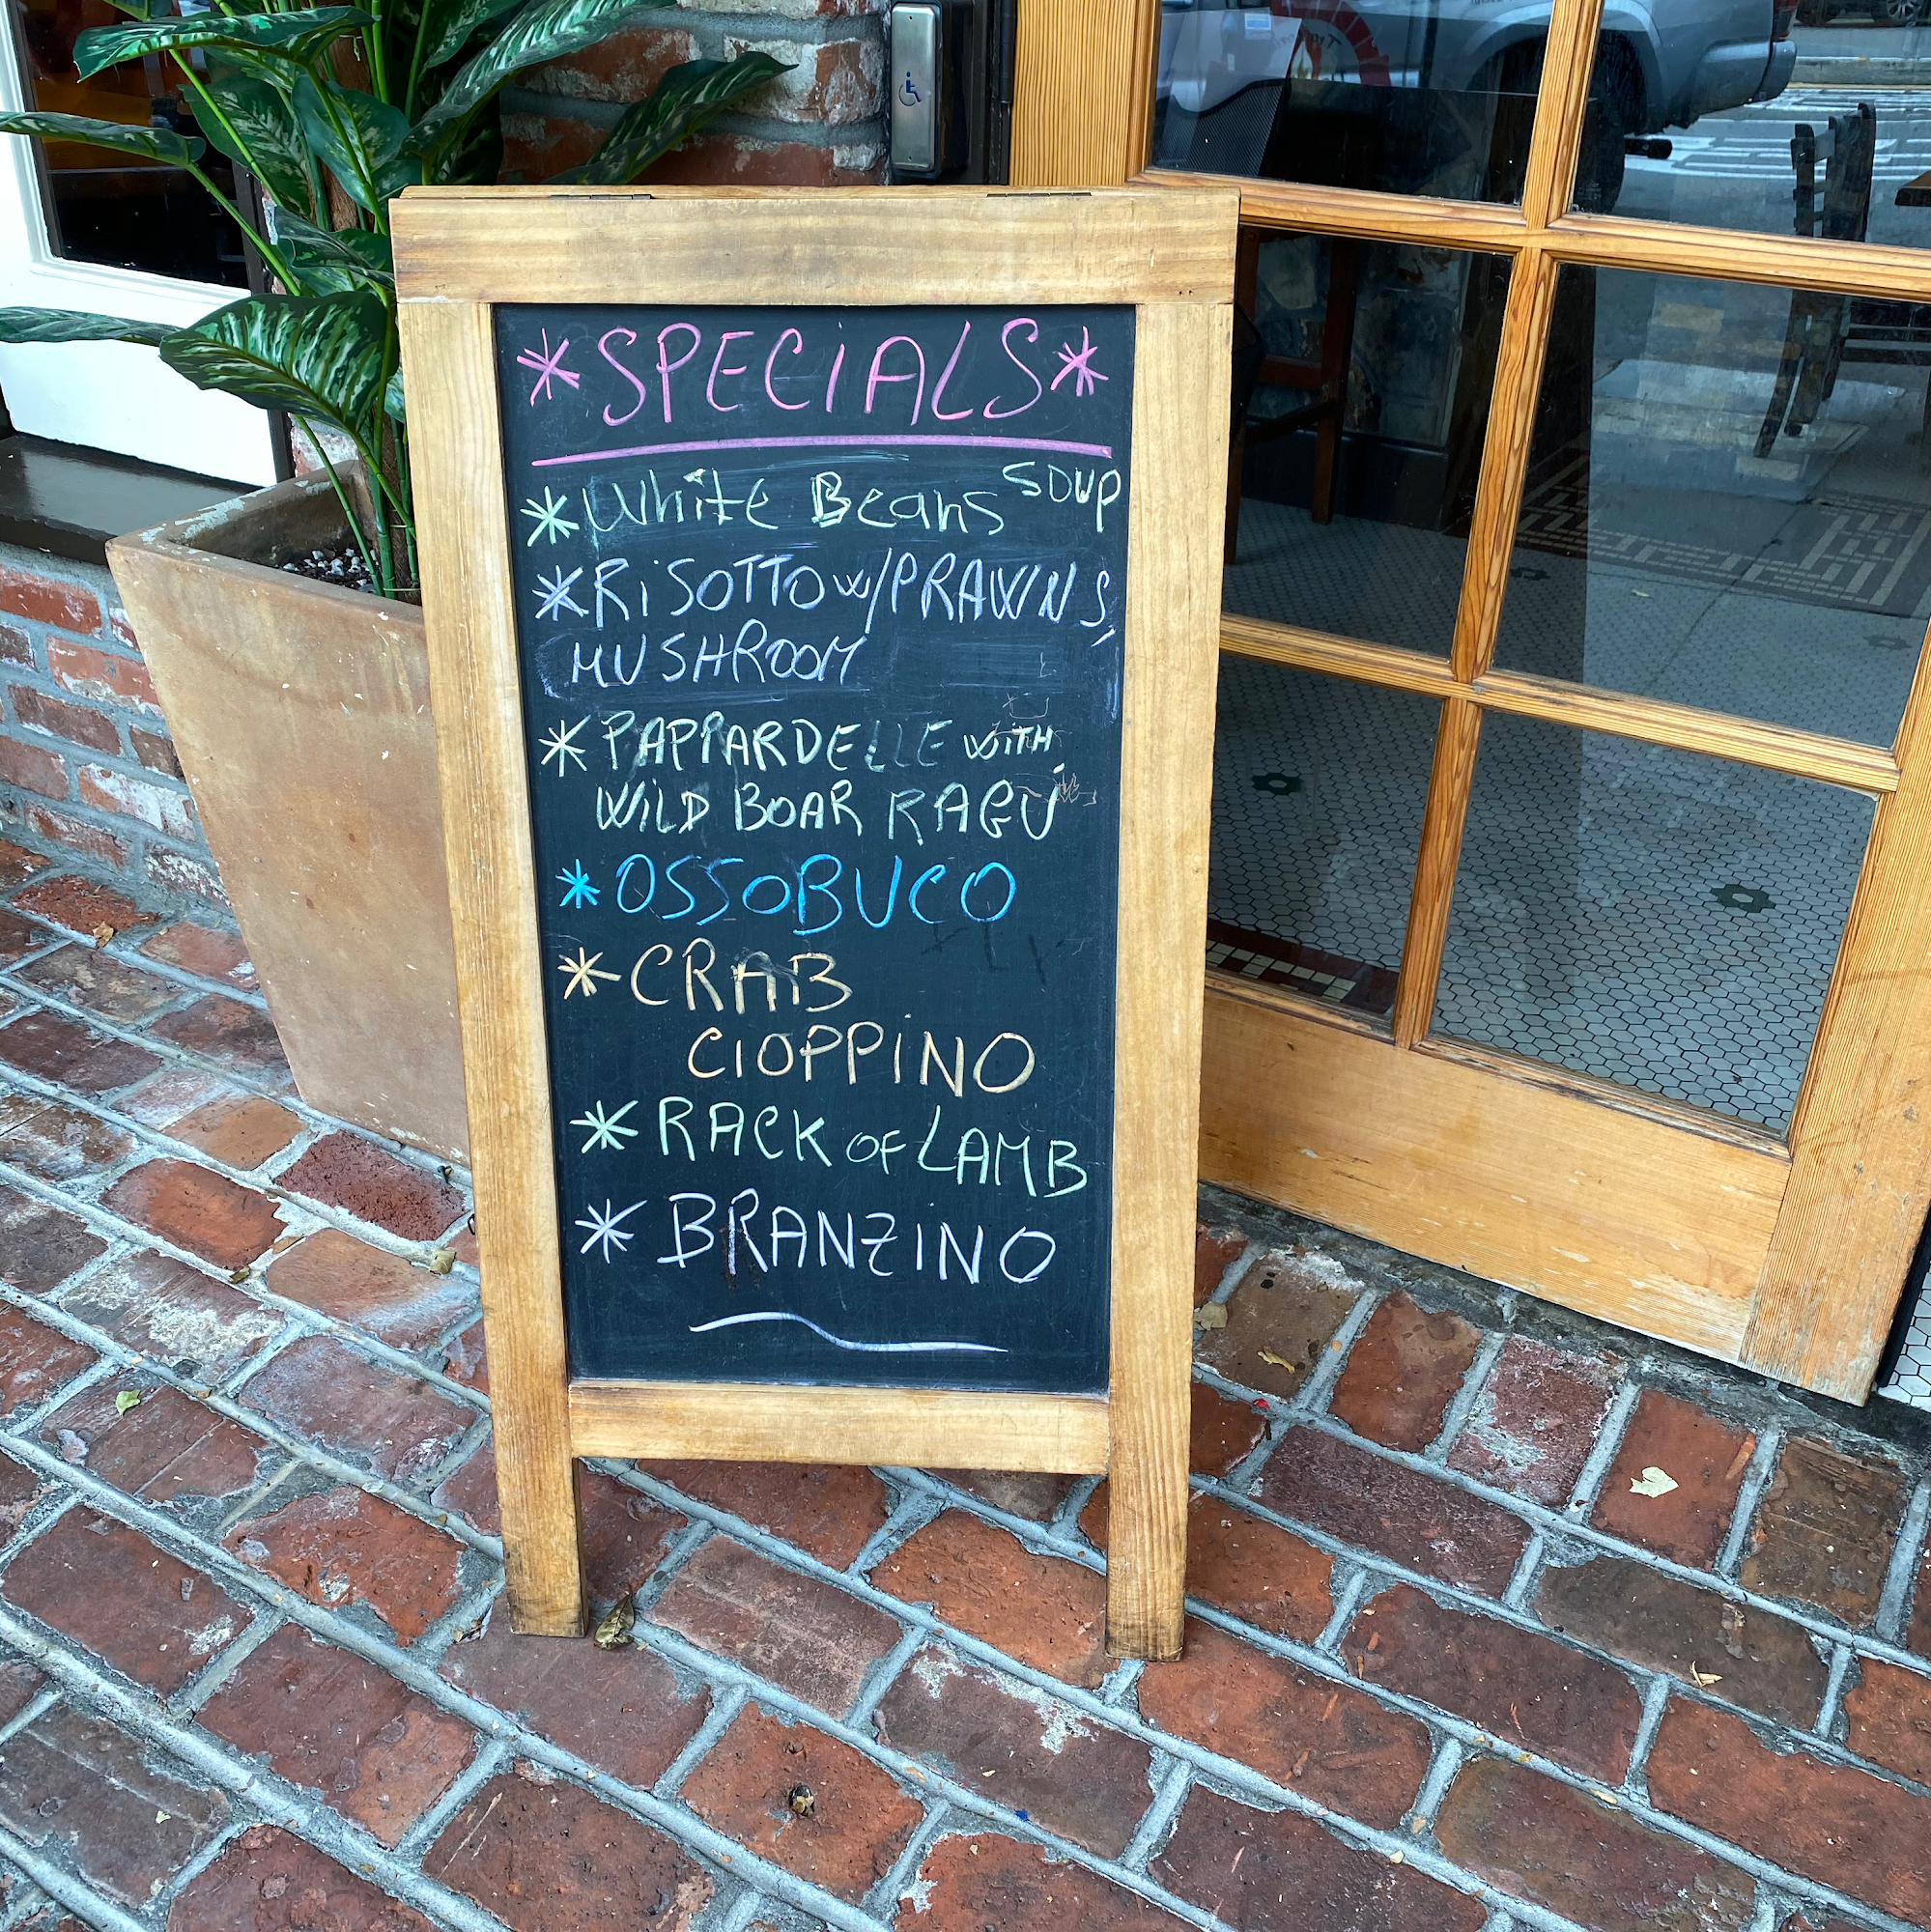 *SPECiALS*
*White Beans SOUP
*RiSOTTO w/PRAWNS,
MUSHROOM
*PAPPARDELLE WiTH
WiLD BOAR RAGU
*OSSOBUCO
*CRAB
CIOPPiNO
*RACK OF LAMB
*BRANZINO